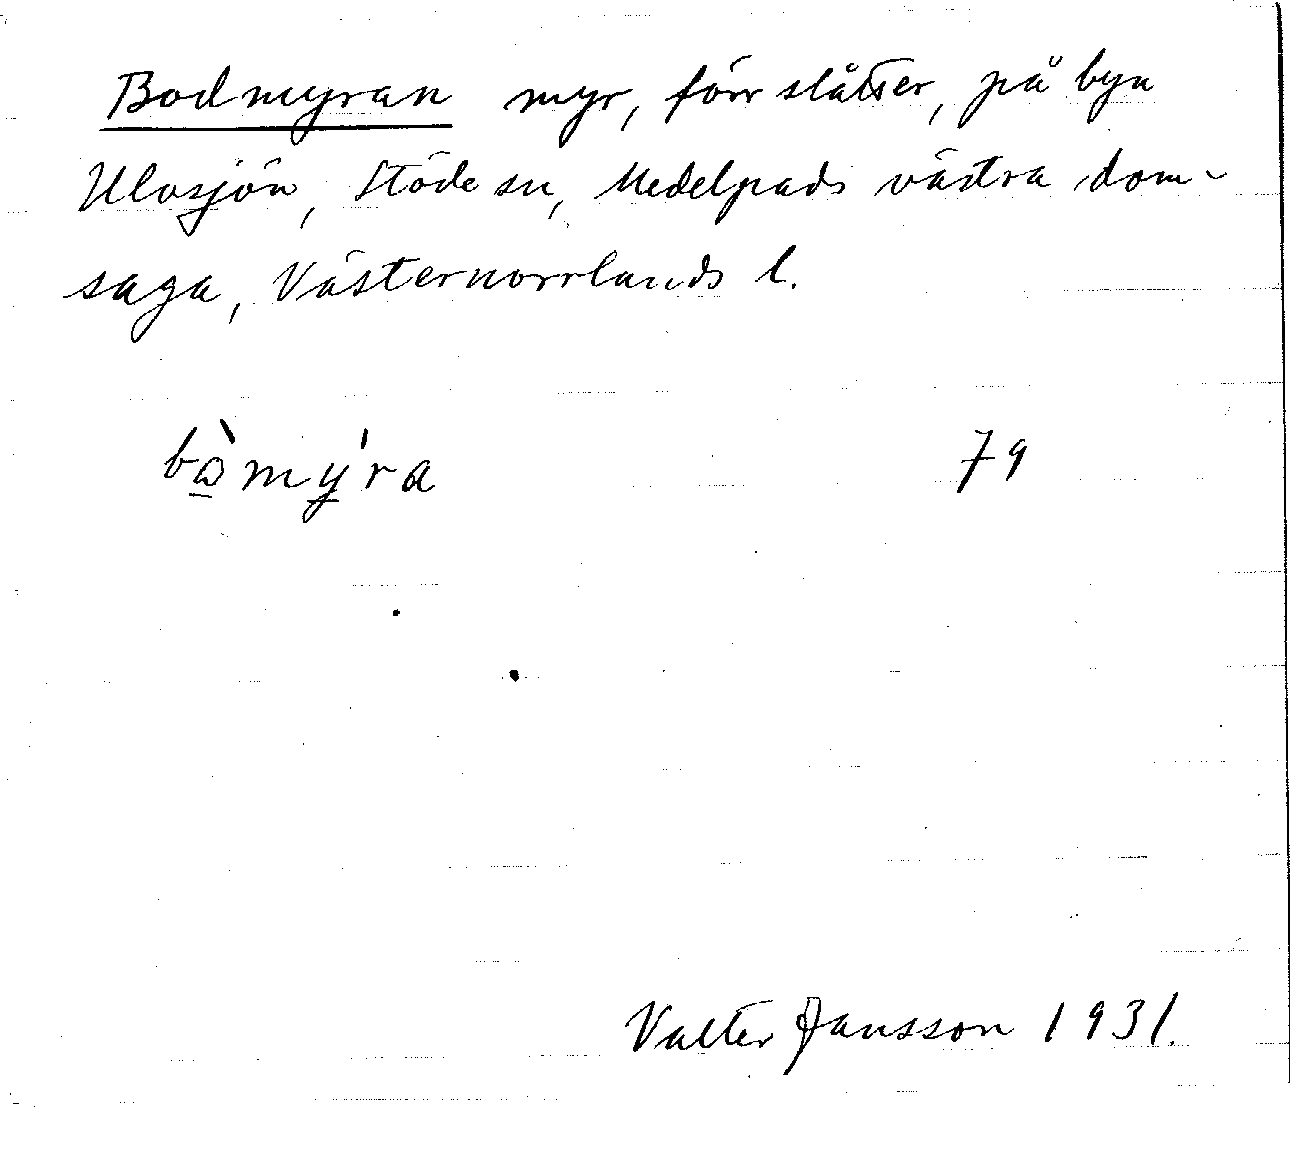 Bodmyran myr, förr slåtter, på byn
Ulvsjön, Stöde sn, Medelpads västra dom-
saga, Västernorrlands l.
bò̱mýra 79
Valter Jansson 1931.